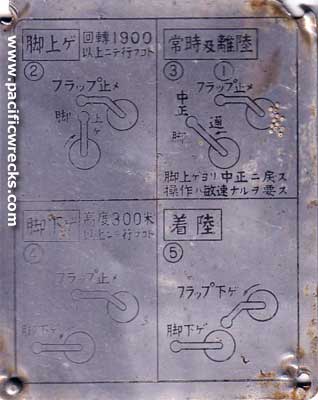 脚上ゲ
回轉1900
以上ニテ行フコト
②
フラップ止メ
脚
上ゲ
常時及離陸
③
①
フラップ止メ
中正
脚
脚上ゲヨリ中正ニ戻ス
操作ハ敏速ナルヲ要ス
脚下ゲ
高度300米
以上ニテ行フコト
④
フラップ止メ
脚下ゲ
着陸
⑤
フラップ下ゲ
脚下ゲ
www.pacificwrecks.com